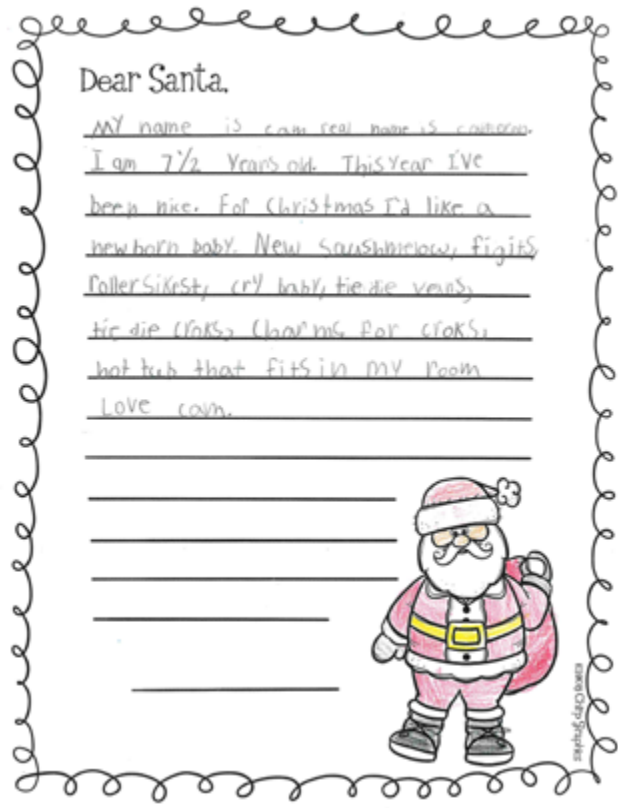 Dear Santa,
My name is cam real name is cameron.
I am 7 1/2 years old. This year I've
been nice. For Christmas I'd like a
new born baby. New Squshmelow, figits,
roller sikest, cry baby, tie die vens,
tie die croks, Charms for croks,
hot tub that fits in my room
Love cam.